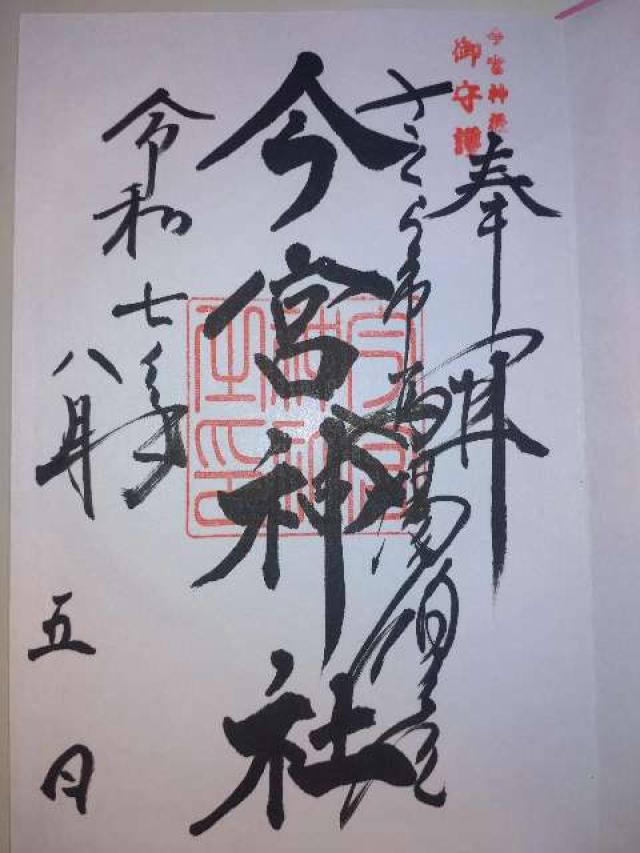 今宮神社
御守護
奉拝
さくら市 馬場
今宮神社
令和七年
八月
五日